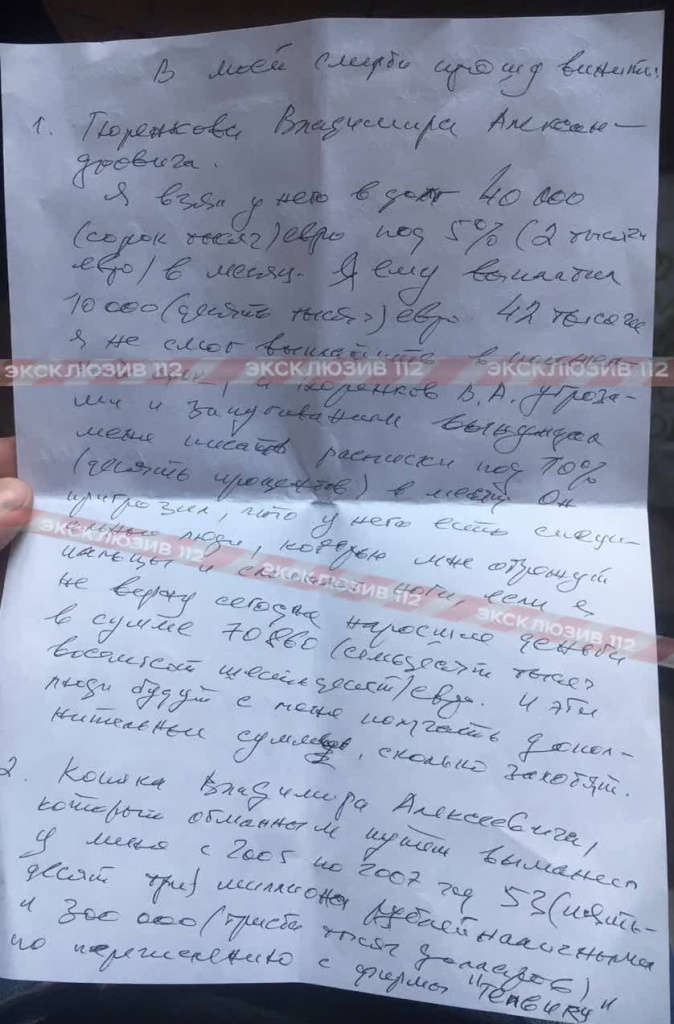 В моей смерти прошу винить:
1. Тюренкова Владимира Алексан-
дровича.
Я взял у него в долг 40 000
(сорок тысяч) евро под 5% (2 тысячи
евро) в месяц. Я ему выплатил
10 000 (десять тысяч) евро 42 тысячи
я не смог выплатить в
ЭКСКЛЮЗИВ 112 ЭКСКЛЮЗИВ 112 ЭКСКЛЮЗИВ 112
и Тюренков В.А. угроза-
ми и запугиванием вынуждал
меня писать расписки под 10%
(десять процентов) в месяц. Он
пригрозил, что у него есть специ-
альные люди, которые мне отрежут
ЭКСКЛЮЗИВ 112 ЭКСКЛЮЗИВ 112 ЭКСКЛЮЗИВ 112
пальцы и ноги, если я
не верну сегодня наросшие деньги
в сумме 70 860 (семьдесят тысяч
восемьсот шестьдесят) евро. И эти
люди будут с меня получать допол-
нительные суммы, сколько захотят.
2. Владимира Алексеевича,
который обманным путем выманил
у меня с 2005 по 2007 год 53 (пять-
десят три) миллиона рублей наличными
и 300 000 (триста тысяч долларов)
по перечислению с фирмы